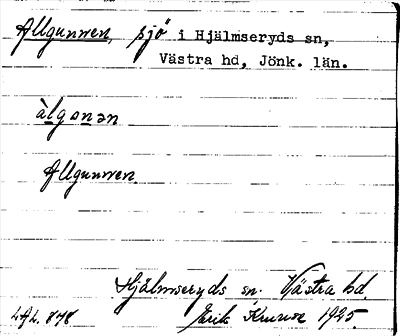 Allgunnen, sjö i Hjälmseryds sn,
Västra hd, Jönk. län.
àlgɵnən
Allgunnen
Hjälmseryds sn. Västra hd.
Erik 1925.